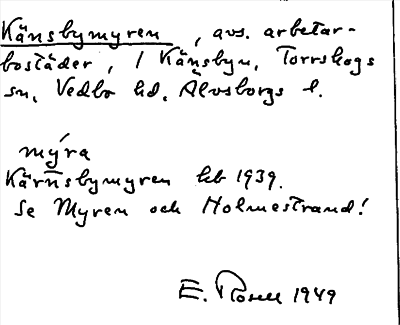 Känsbymyren, avs. arbetar-
bostäder, i Känsbyn, Torrskogs
sn, Vedbo hd, Älvsborgs l.
mýra
Kärnsbymyren kb 1939.
Se Myren och Holmestrand!
E. Rosell 1949